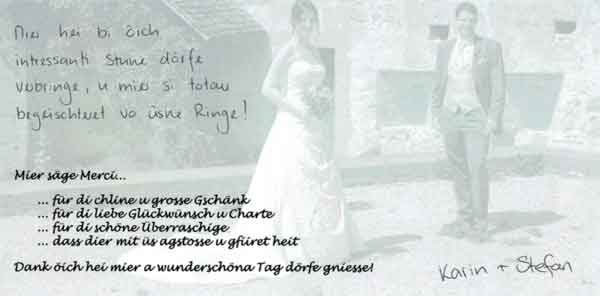 Mier hei bi öich
intressanti Stune dörfe
verbringe, u mier si totau
begeischteret vo üsne Ringe!
Mier säge Merci...
... für di chline u grosse Gschänk
... für di liebe Glückwünsch u Charte
... für di schöne Überraschige
... dass dier mit üs agstosse u gfiiret heit
Dank öich hei mier a wunderschöna Tag dörfe gniesse!
Karin + Stefan